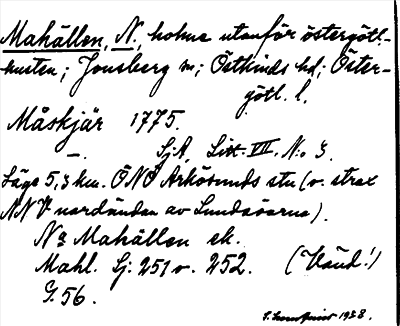 Mahällen, N., holme utanför östergötl.-
kusten; Jonsberg sn; Östkinds hd; Öster-
götl. l.
Måskjär 1775.
—. SjA, Litt. VII, N:o 3.
Läge 5,3 km. ÖNO Arkösunds stn (o. strax
NNV nordändan av Lundaöarna).
Na Mahällen ek.
Mahl. Sj: 251 v. 252. (Vänd!)
G. 56.
1938.